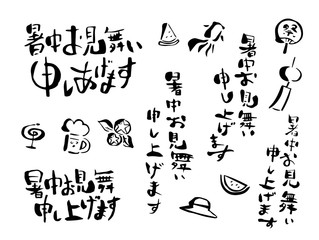 暑中お見舞い
申しあげます
暑中お見舞い
申し上げます
暑中お見舞い
申し上げます
祭
暑中お見舞い
申し上げます
暑中お見舞
申し上げます